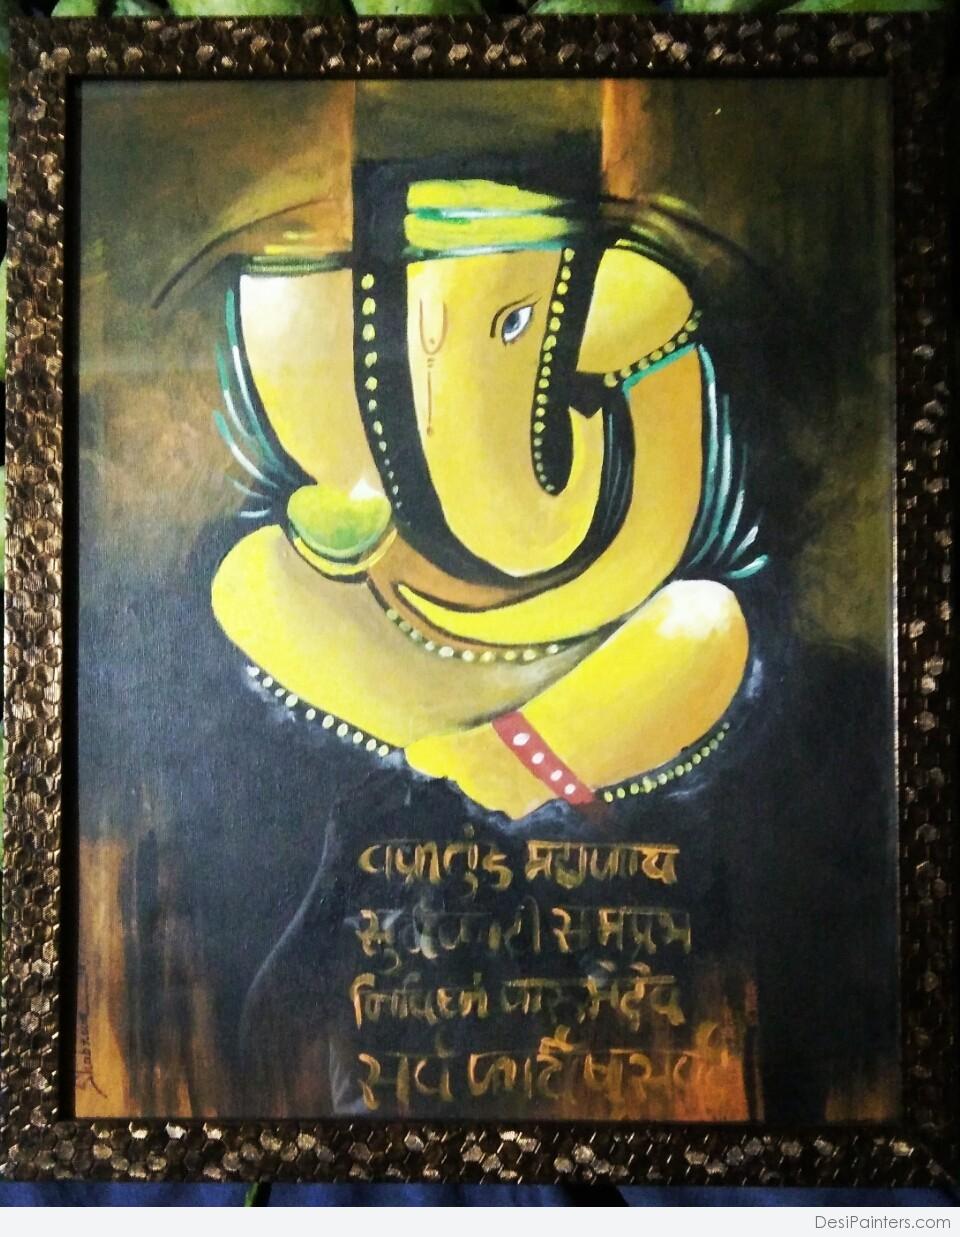 वक्रतुंड महाकाय
सुर्यकोटी समप्रभ
निर्विघ्नं कारू मेदेव
सर्व कार्येषु सर्वदा
Shabnam
DesiPainters.com